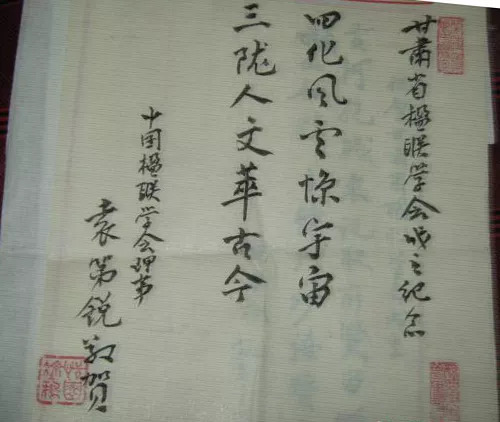 甘肃省楹联学会成立纪念
四化风云惊宇宙
三陇人文萃古今
中国楹联学会理事
袁第锐敬贺